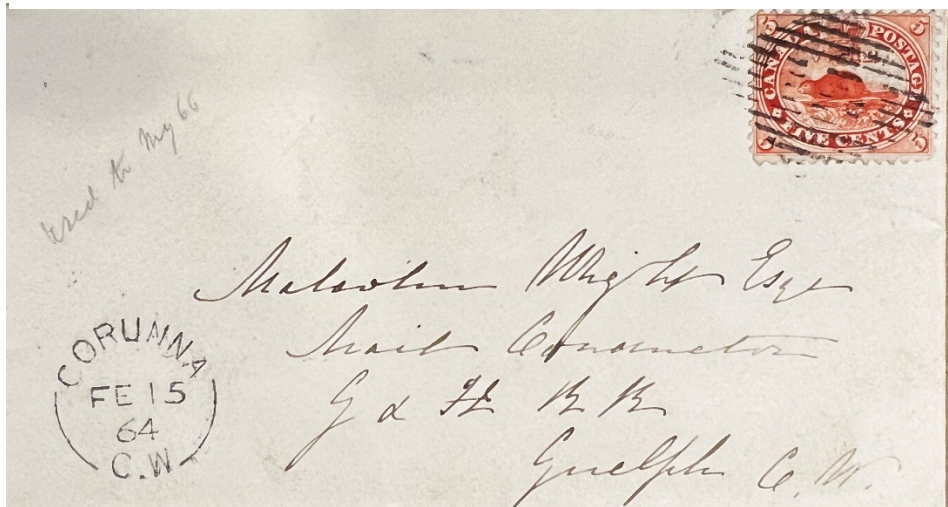 5 5
CANADA POSTAGE
FIVE CENTS
5 5
Used to My 66
Malcolm Wright Esqr
Mail Conductor
G & H R R
Guelph C. W.
CORUNNA
FE 15
64
C.W